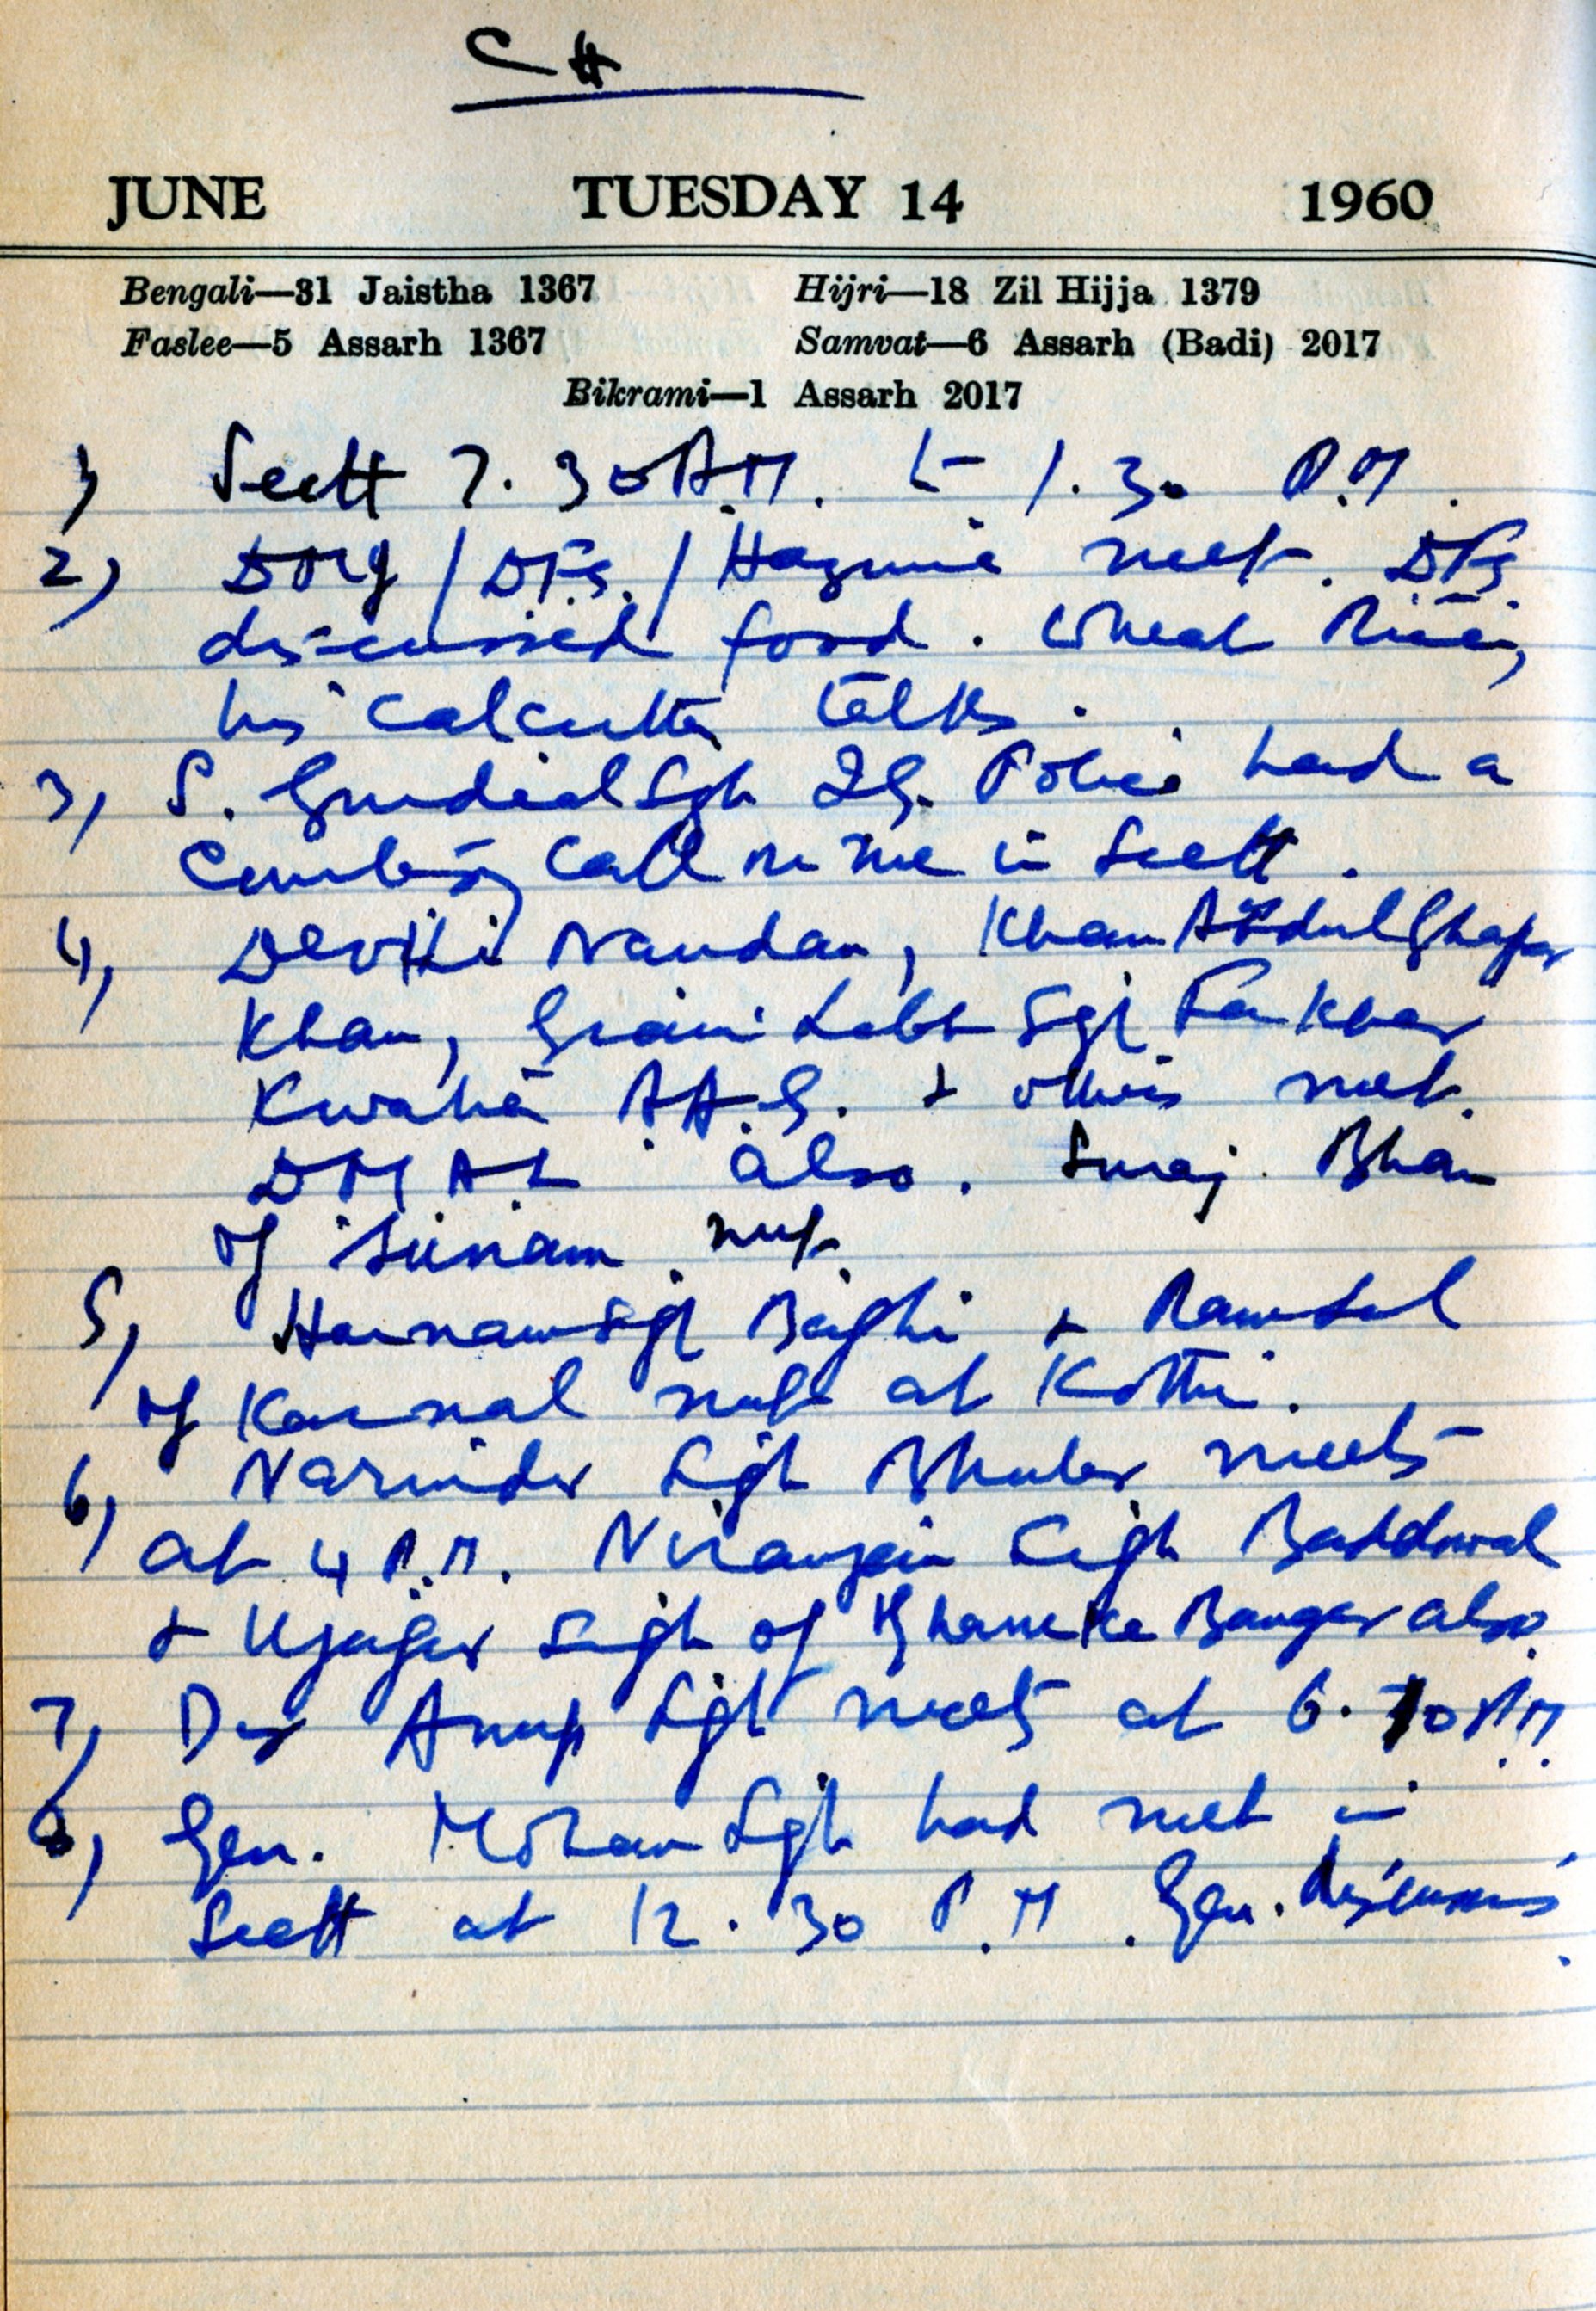 CH
JUNE TUESDAY 14 1960
Bengali—31 Jaistha 1367 Hijri—18 Zil Hijja 1379
Faslee—5 Assarh 1367 Samvat—6 Assarh (Badi) 2017
Bikrami—1 Assarh 2017
1) Sectt 7.30 A.M. to 1.30 P.M.
2) / DFS. / met. DFS
discussed food. Wheat Prices,
his Calcutta talks.
3) S. Gurdial Sgh IG. Police had a
Courtesy Call on me in Sectt.
4) Devki Nandan, Khan Abdul Ghafar
Khan, Giani Labh Sgh
A.A.G. & others met.
also. Suraj Bhan
of Sunam met.
5) Harnam Sgh Baghi & Ram Lal
of Karnal met at Kothi.
6) Narinder Sigh Bhuler meets
at 4 P.M. Niranjan Sigh Baddowal
& Ujagar Singh of Banger also.
7) Dr Anup Sigh meets at 6. P.M.
8) Gen. Mohan Sgh had met in
Sectt at 12.30 P.M. Gen. discussions.